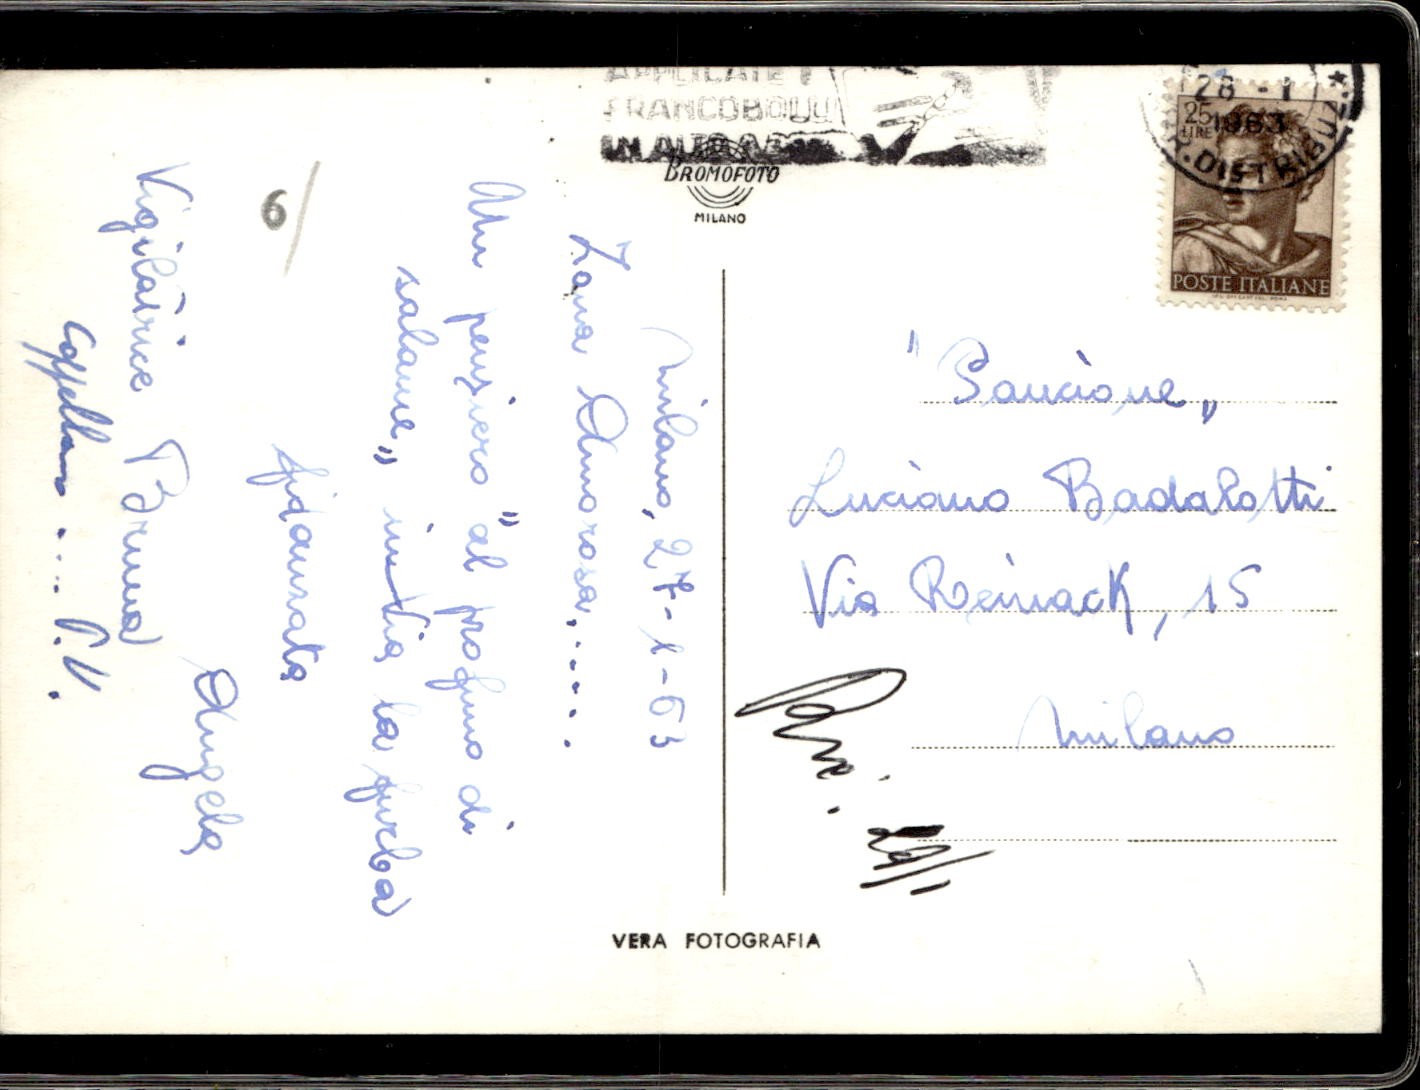 APPLICATE I
FRANCOBOLLI
IN ALTO A
BROMOFOTO
MILANO
28 - 1
1963
R. DISTRIBUZ
25
LIRE
POSTE ITALIANE
6/
Milano, 27-1-63
Zona Amorosa,.....
Un pensiero "al profumo di
salame" invia la furba
fidanzata
Angela
Vigilatrice Bruna
" Pancione "
Luciano Badalotti
Via Reinack, 15
Milano
VERA FOTOGRAFIA